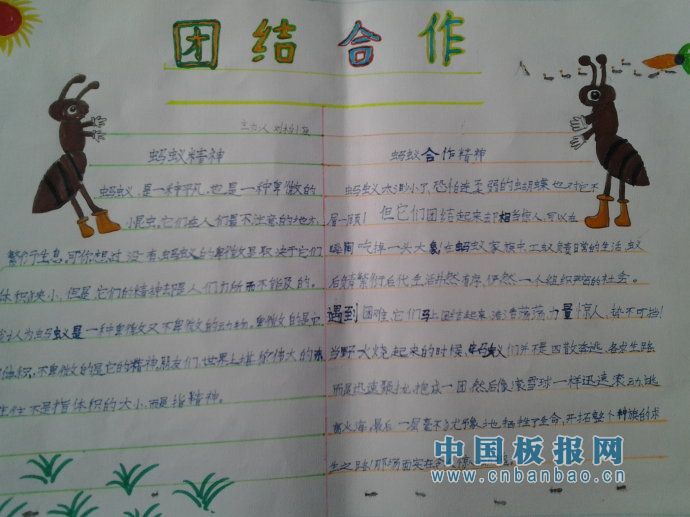 团结合作
主办人
蚂蚁精神
蚂蚁,是一种平凡,也是一种卑微的
小昆虫,它们在人们最不注意的地方,
繁衍生息,可你想过没有蚂蚁的卑微是取决于它们
体积狭小,但是它们的精神却是人们力所而不能及的。
认为蚂蚁是一种卑微又不卑微的动物,卑微的是它
体积,不卑微的是它的精神,朋友们,世界上堪称伟大的
往往不是指体积的大小,而是指精神。
蚂蚁合作精神
蚂蚁太渺小了,恐怕连柔弱的蝴蝶也对它不
屑一顾!但它们团结起来却相当惊人,可以在
瞬间吃掉一头大象,在蚂蚁家族中工蚁负责日常的生活,蚁
后负责繁衍后代生活井然有序,俨然一个组织严密的社会。
遇到困难,它们马上团结起来浩浩荡荡,力量惊人,势不可挡!
当野火烧起来的时候,蚂蚁们并不是四散奔逃,各求生路
而是迅速聚拢,抱成一团,然后像滚雪球一样迅速滚动,逃
离火海,最后一层毫不犹豫地牺牲了生命,开拓整个种族的求
生之路!那场面实在
中国板报网
www.cnbanbao.cn